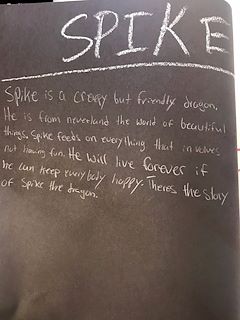 SPIKE
Spike is a creepy but friendly dragon.
He is from neverland the world of beautiful
things. Spike feeds on everything that involves
not having fun. He will live forever if
he can keep everybody happy. Theres the story
of Spike the dragon.